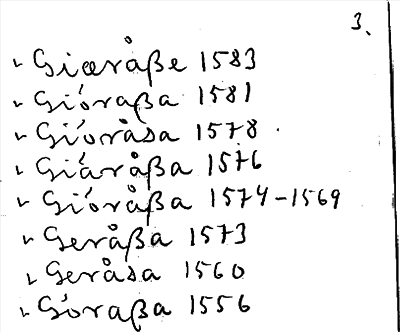 3.
Giæråße 1583
Gióraßa 1581
Gióråsa 1578.
Giáråßa 1576
Gióråßa 1574-1569
Geråßa 1573
Geråsa 1560
Góraßa 1556